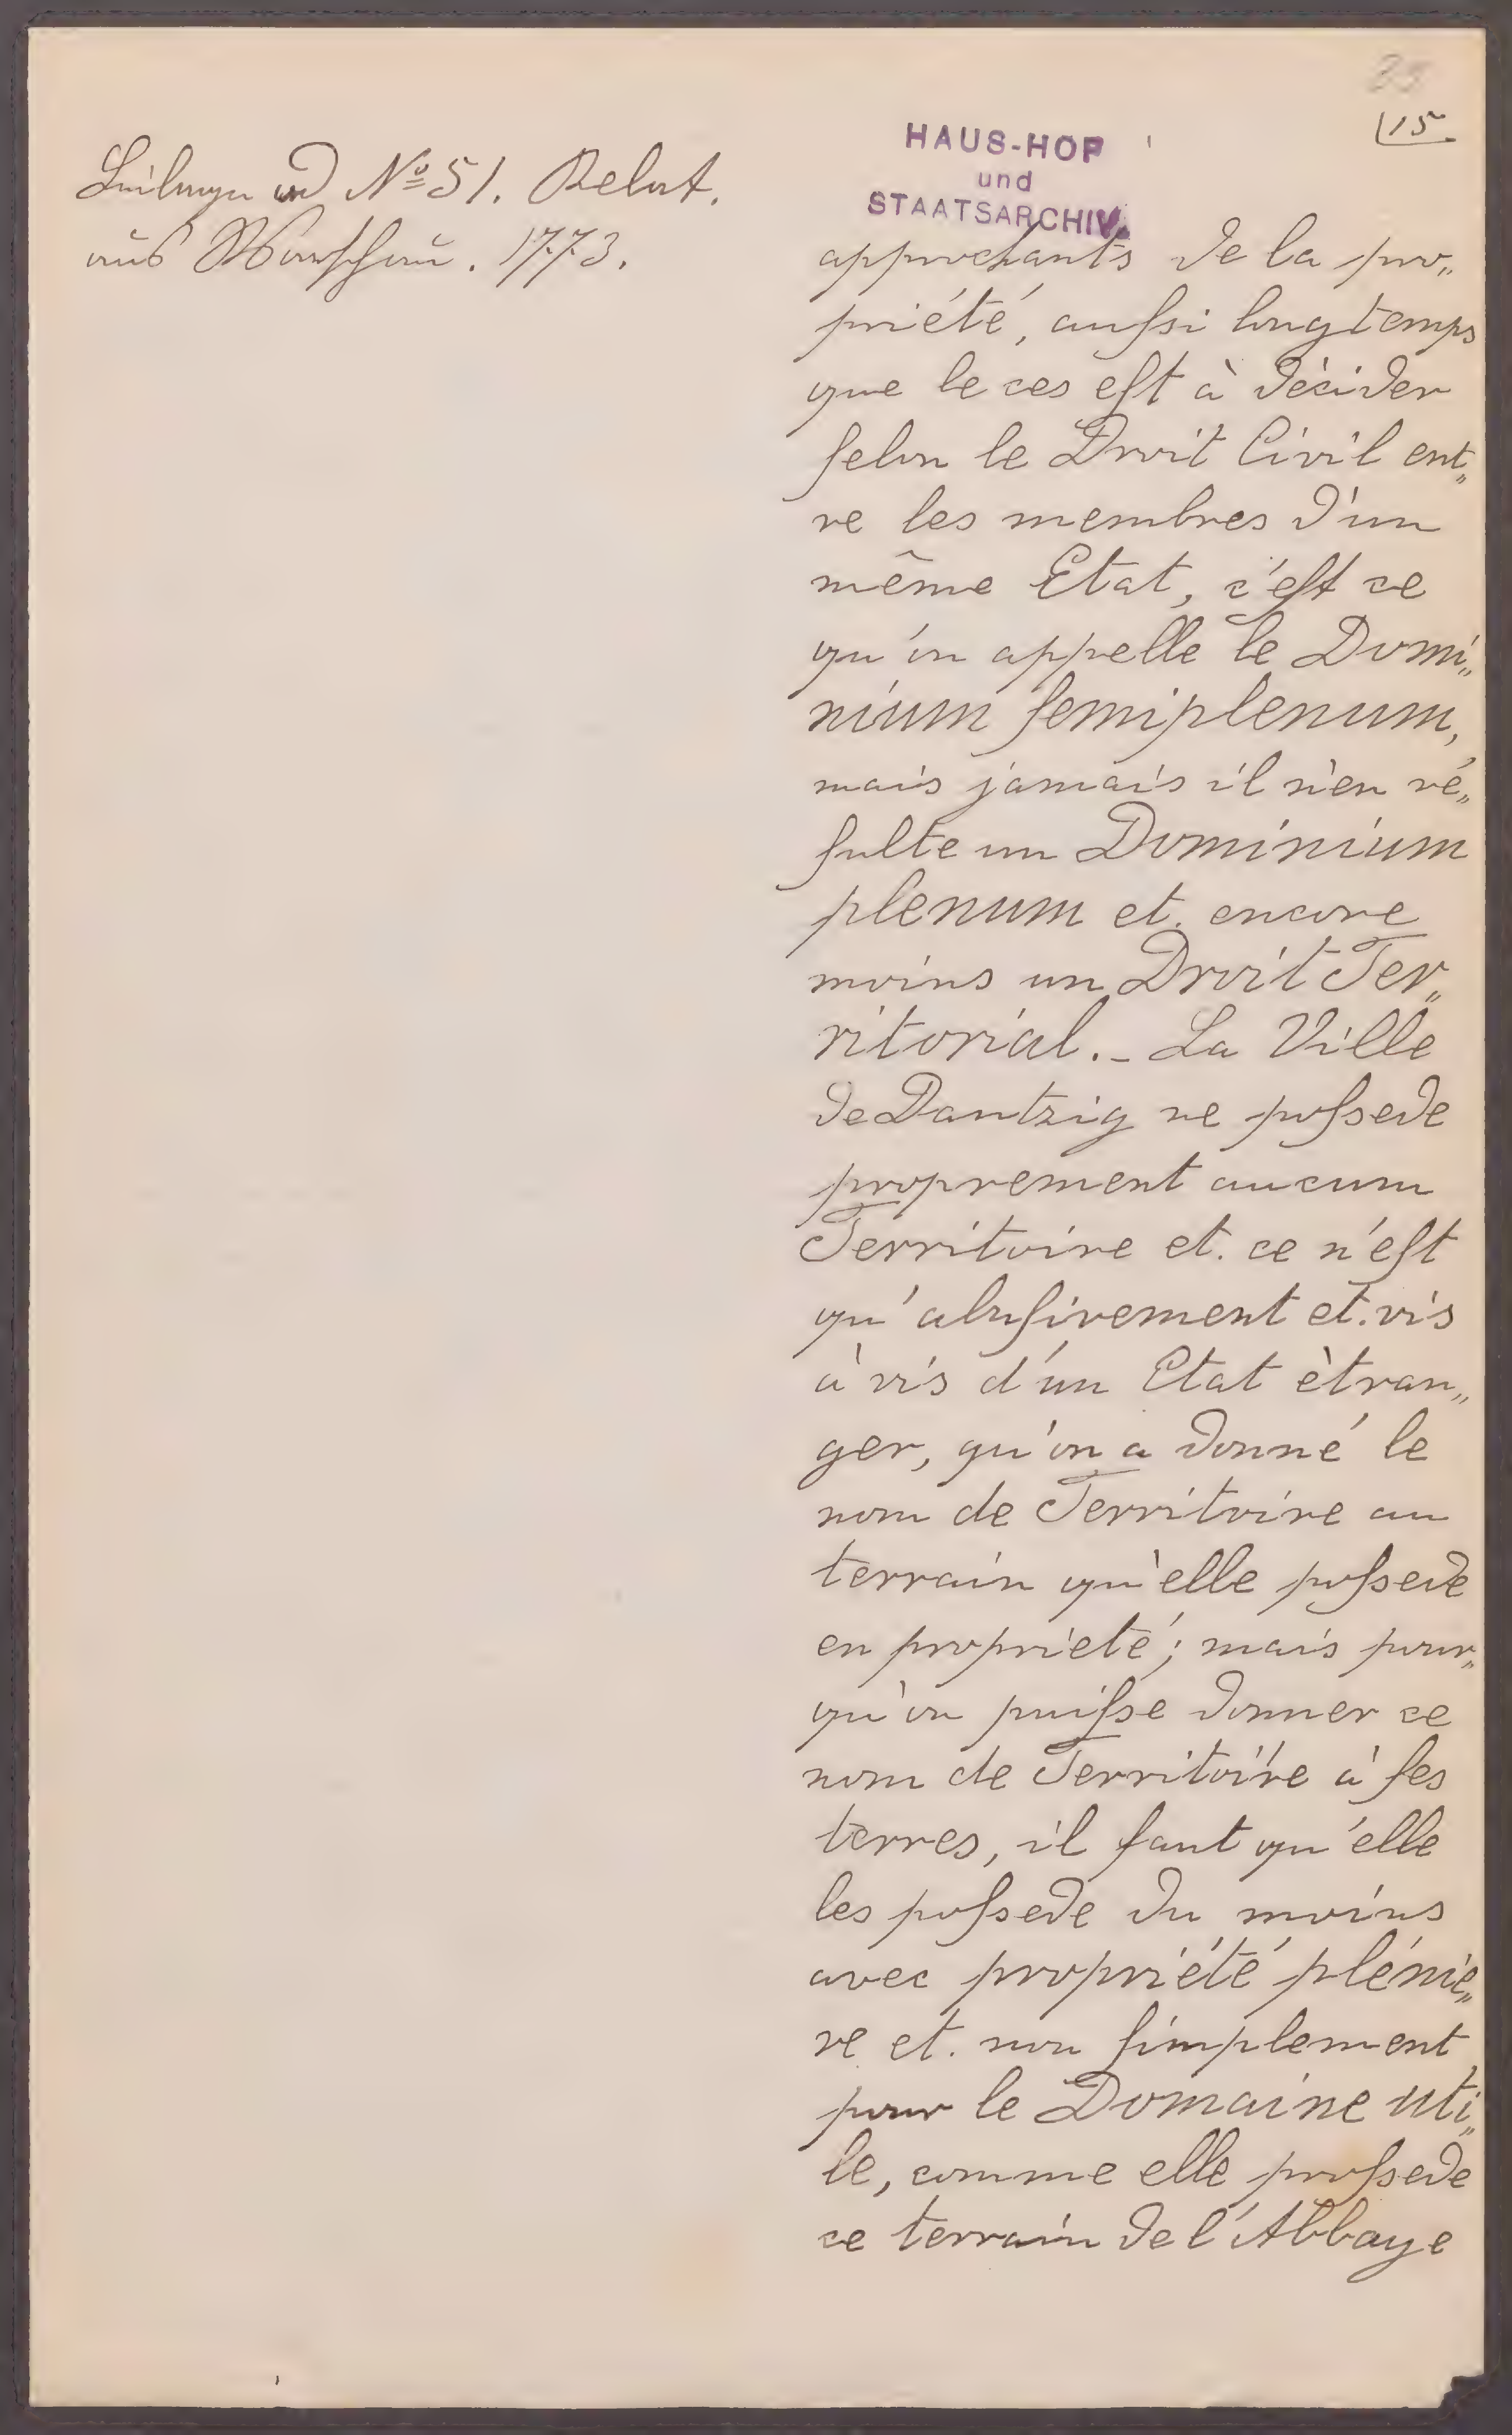 35
15.
Beilagen ad Nº 51. Relat.
aus Warschau. 1773.
HAUS-HOF
und
STAATSARCHIV.
approchants de la pro„
priété, auſsi longtemps
que le ces eſt à dècider
ſelon le Droit Civil ent„
re les membres d'un
même Etat, c'eſt ce
qu'on appelle le Domi„
nium ſemiplenum,
mais jamais il n'en ré„
ſulte un Dominium
plenum et. encore
moins un Droit Ter„
ritorial.- La Ville
de Dantzig ne poſsede
proprement aucun
Territoire et. ce n'eſt
qu'abuſivement et. vis
à vis d'un Etat ètran„
ger, qu'on a donné le
nom de Territoire au
terrain qu'elle poſsede
en proprieté; mais pour„
qu'on puiſse donner ce
nom de Territoire à ſes
terres, il faut qu'elle
les poſsede du moins
avec propriété plénie„
re et. non ſimplement
pour le Domaine uti„
le, comme elle poſsede
ce terrain de l'Abbaye